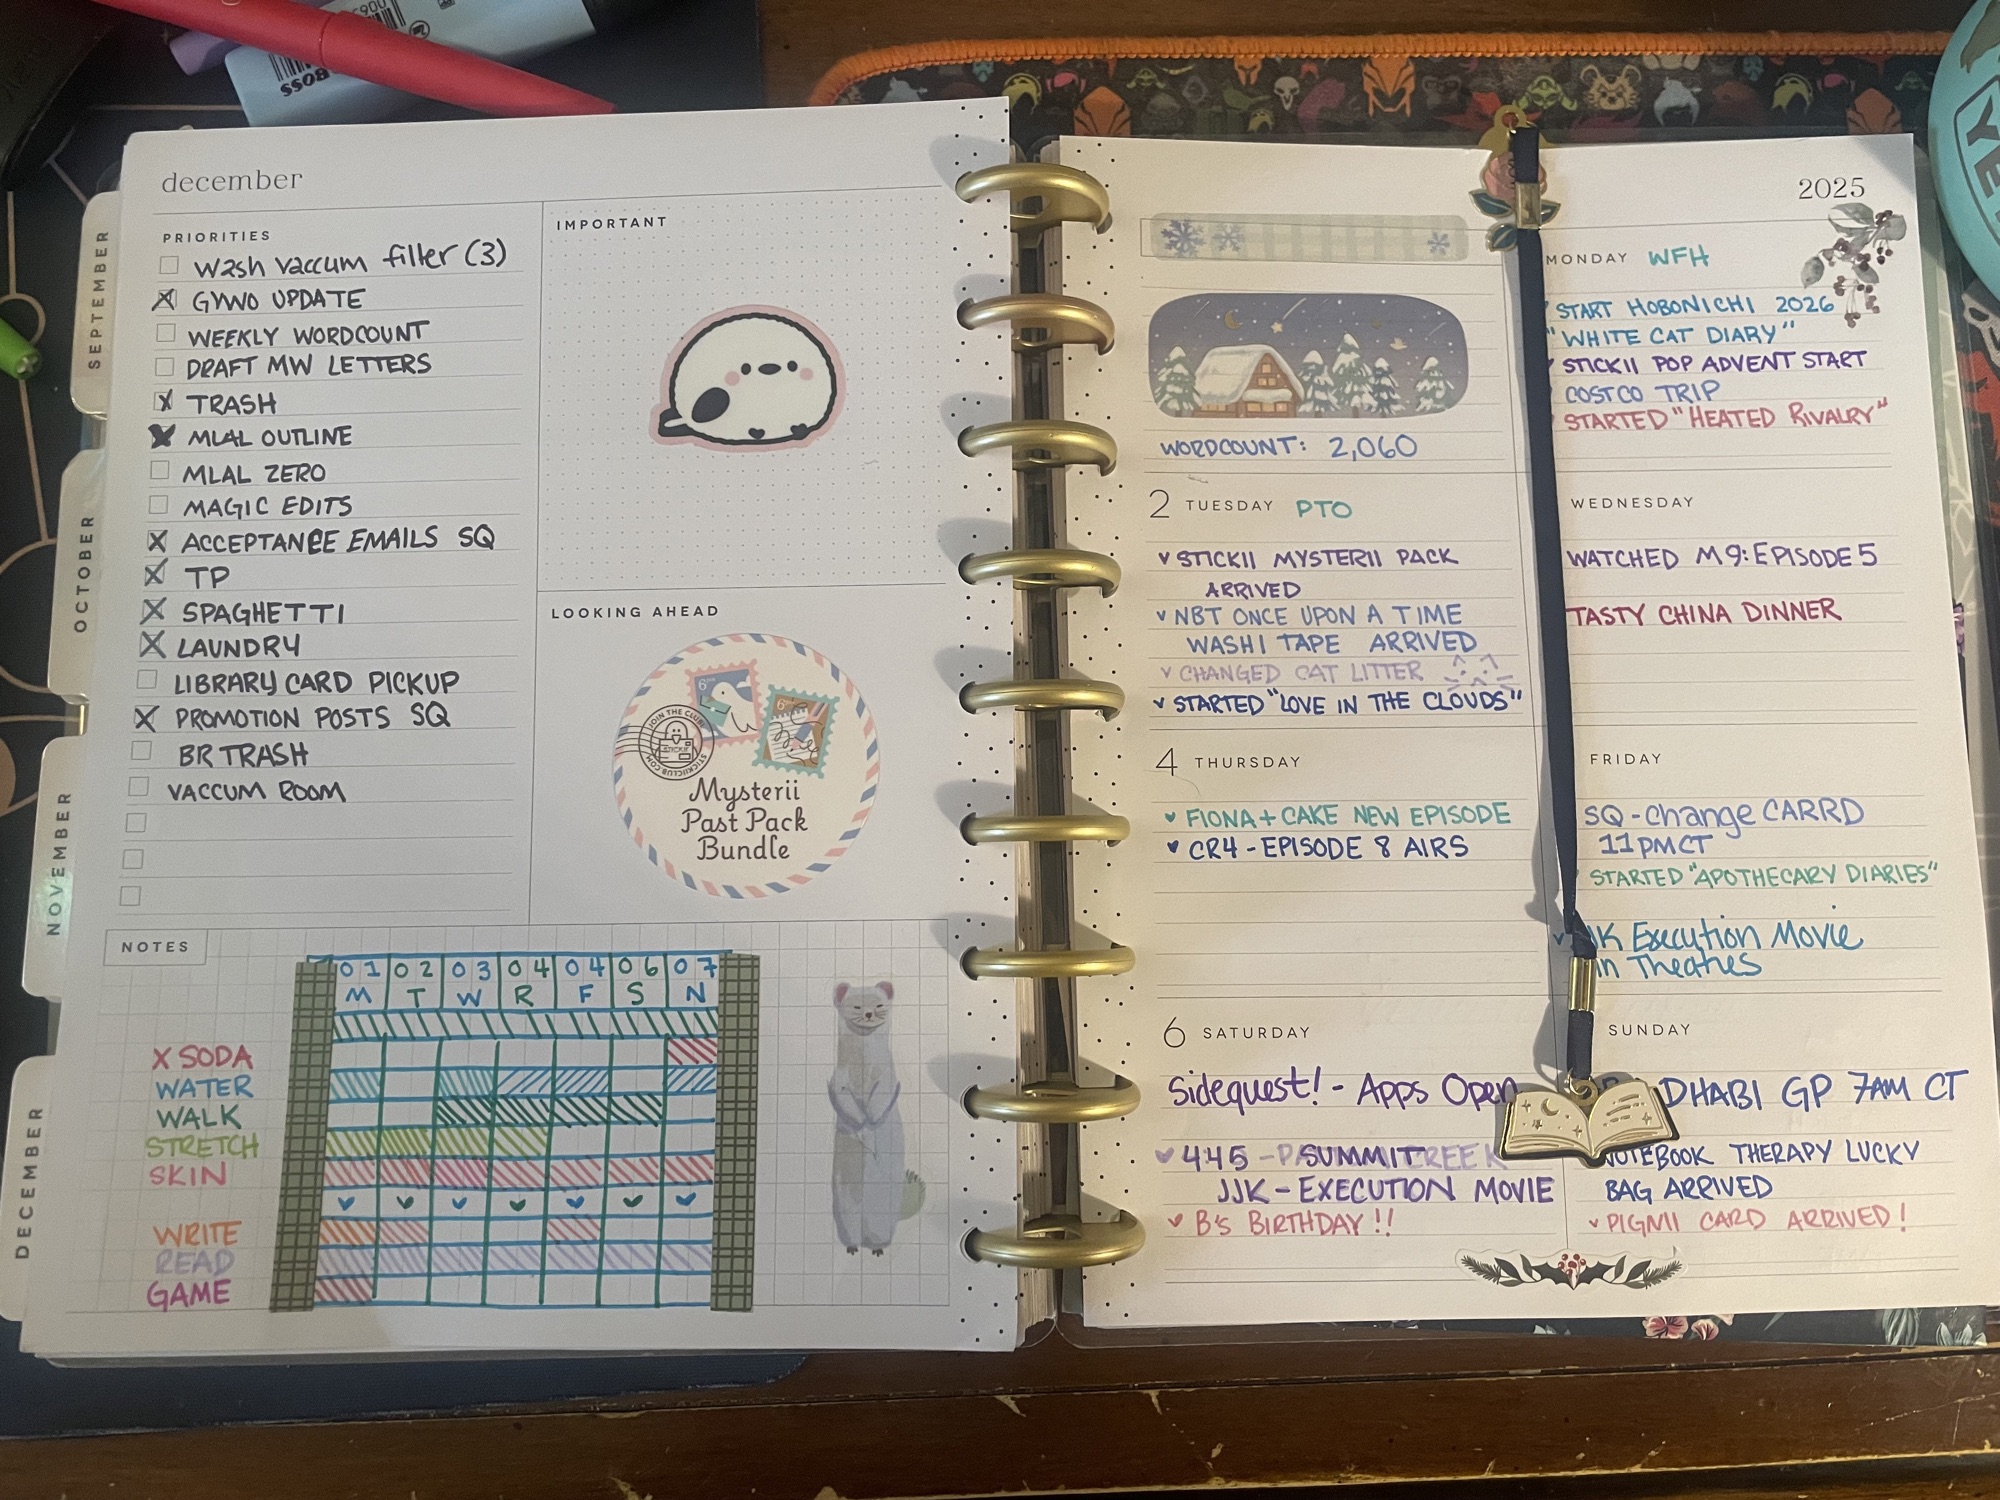 december
PRIORITIES
Wash vaccum filter (3)
GYWO UPDATE
WEEKLY WORDCOUNT
DRAFT MW LETTERS
TRASH
MLAL OUTLINE
MLAL ZERO
MAGIC EDITS
ACCEPTANCE EMAILS SQ
TP
SPAGHETTI
LAUNDRY
LIBRARY CARD PICKUP
PROMOTION POSTS SQ
BR TRASH
VACCUM ROOM
IMPORTANT
LOOKING AHEAD
JOIN THE CLUB!
STICKII
STICKIICLUB.COM
Mysterii
Past Pack
Bundle
NOTES
01 02 03 04 04 06 07
M T W R F S N
X SODA
WATER
WALK
STRETCH
SKIN
WRITE
READ
GAME
SEPTEMBER
OCTOBER
NOVEMBER
DECEMBER
2025
WORDCOUNT: 2,060
MONDAY WFH
START HOBONICHI 2026
"WHITE CAT DIARY"
STICKII POP ADVENT START
COSTCO TRIP
STARTED "HEATED RIVALRY"
2 TUESDAY PTO
STICKII MYSTERII PACK
ARRIVED
NBT ONCE UPON A TIME
WASHI TAPE ARRIVED
CHANGED CAT LITTER
STARTED "LOVE IN THE CLOUDS"
WEDNESDAY
WATCHED M9: EPISODE 5
TASTY CHINA DINNER
4 THURSDAY
FIONA + CAKE NEW EPISODE
CR4 - EPISODE 8 AIRS
FRIDAY
SQ - Change CARRD
11PM CT
STARTED "APOTHECARY DIARIES"
JK Execution Movie
in Theatres
6 SATURDAY
Sidequest! - Apps Open
4:45 - SUMMIT
JJK - EXECUTION MOVIE
B'S BIRTHDAY!!
SUNDAY
DHABI GP 7AM CT
NOTEBOOK THERAPY LUCKY
BAG ARRIVED
PIGNII CARD ARRIVED!
BOSS
YE